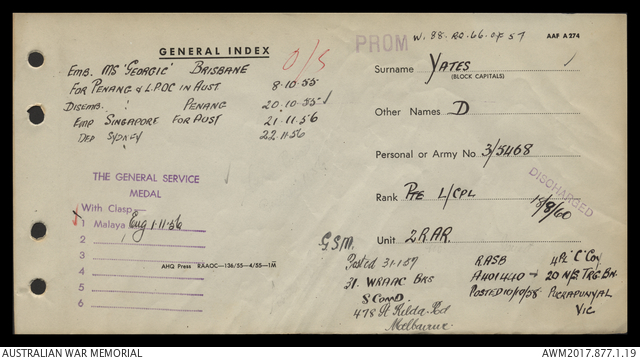 PROM
W. 88. RO. 66. OF 57
AAF A 274
GENERAL INDEX
O/S
EMB. MS 'GEORGIC' BRISBANE
FOR PENANG & L.P.OC IN AUST 8.10.55
DISEMB. : PENANG 20.10.55
EMP SINGAPORE FOR AUST 21.11.56
DEP SYDNEY 22.11.56
Surname YATES
(BLOCK CAPITALS)
Other Names D
Personal or Army No. 3/5468
Rank PTE L/CPL
DISCHARGED
18/8/60
Unit 2 RAR.
THE GENERAL SERVICE
MEDAL
With Clasp—
1 Malaya Eng 1.11.56
2
3
4
5
6
AHQ Press RAAOC—136/55—4/55—1M
G.S.M.
Posted 31.1.57
31. WRAAC BKS
S COMD.
478 St Kilda Rd
Melbourne
RASB
A401440 →
POSTED 10/10/58
4 PL "C" COY
20 N/S TRG BN.
PUCKAPUNYAL
VIC
AUSTRALIAN WAR MEMORIAL
AWM2017.877.1.19